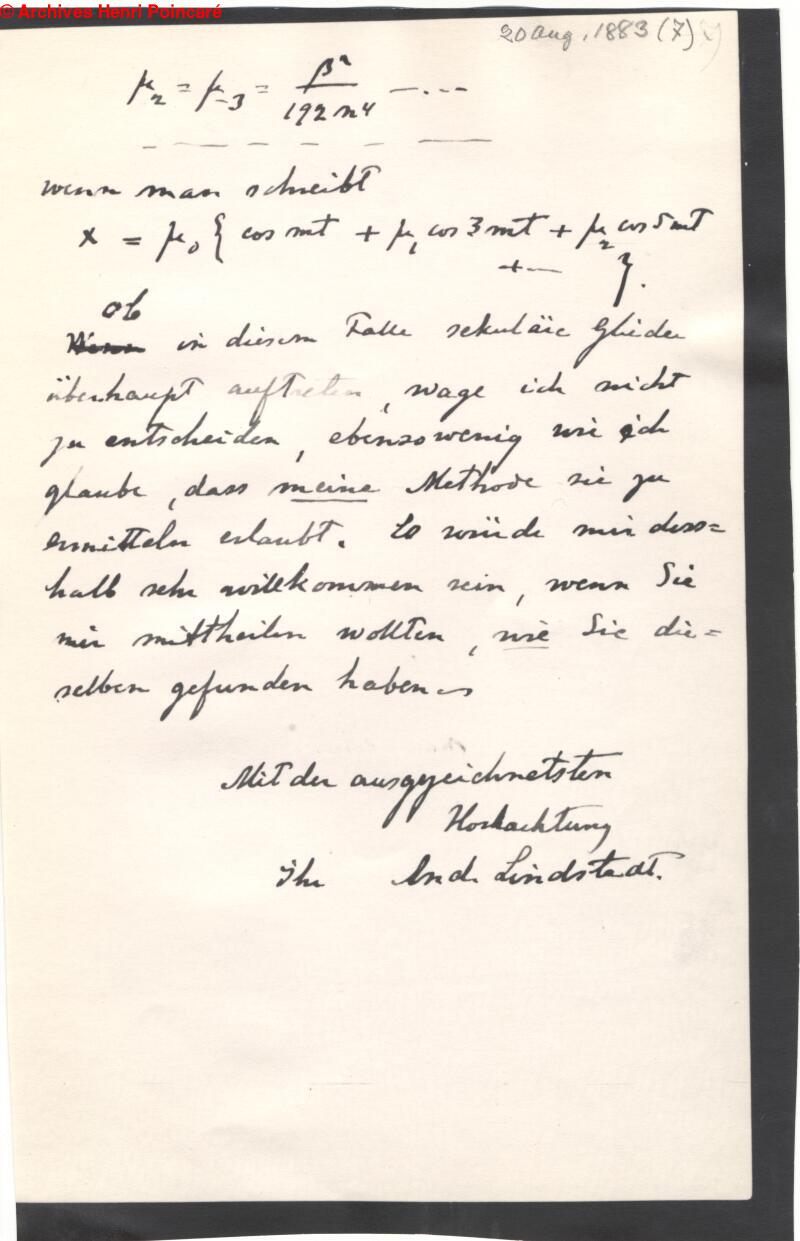 © Archives Henri Poincaré
20 Aug. 1883 (7)
μ₂ = μ₋₃ = β²/192n⁴ -...
wenn man schreibt
x = μ₀ { cos mt + μ₁ cos 3mt + μ₂ cos 5mt
+ ... }.
ob
in diesem Falle sekuläre Glieder
überhaupt auftreten, wage ich nicht
zu entscheiden, ebensowenig wie ich
glaube, dass meine Methode sie zu
ermitteln erlaubt. Es würde mir dess=
halb sehr willkommen sein, wenn Sie
mir mittheilen wollten, wie Sie die=
selben gefunden haben
Mit der ausgezeichnetsten
Hochachtung
Ihr And. Lindstedt.